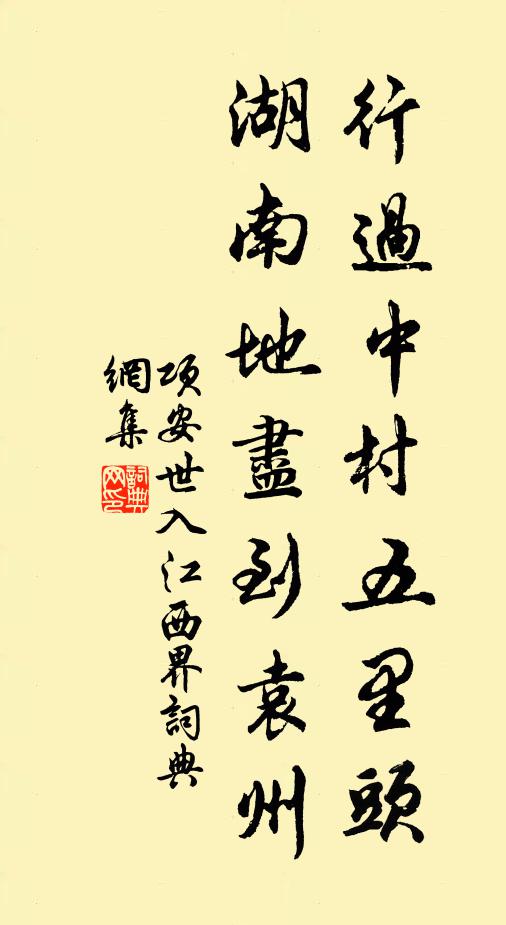 行過中村五里頭
湖南地盡到袁州
項安世入江西界詞典
網集
詞典
網印